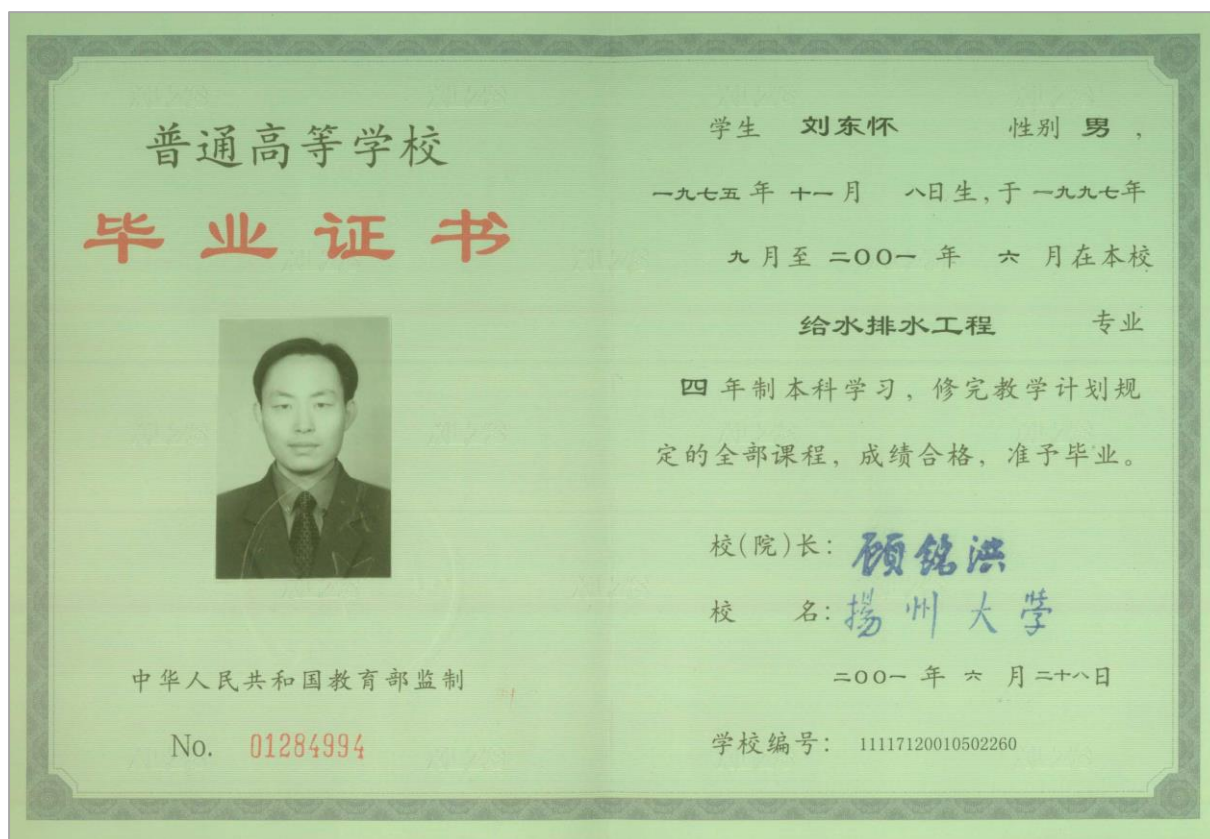 普通高等学校
毕业证书
中华人民共和国教育部监制
No. 01284994
学生 刘东怀 性别 男，
一九七五年 十一月 八日生，于 一九九七年
九月至 二〇〇一 年 六 月在本校
给水排水工程 专业
四 年制本科学习，修完教学计划规
定的全部课程，成绩合格，准予毕业。
校(院)长：顾铭洪
校 名：揚州大學
二〇〇一 年 六 月二十八日
学校编号：11117120010502260